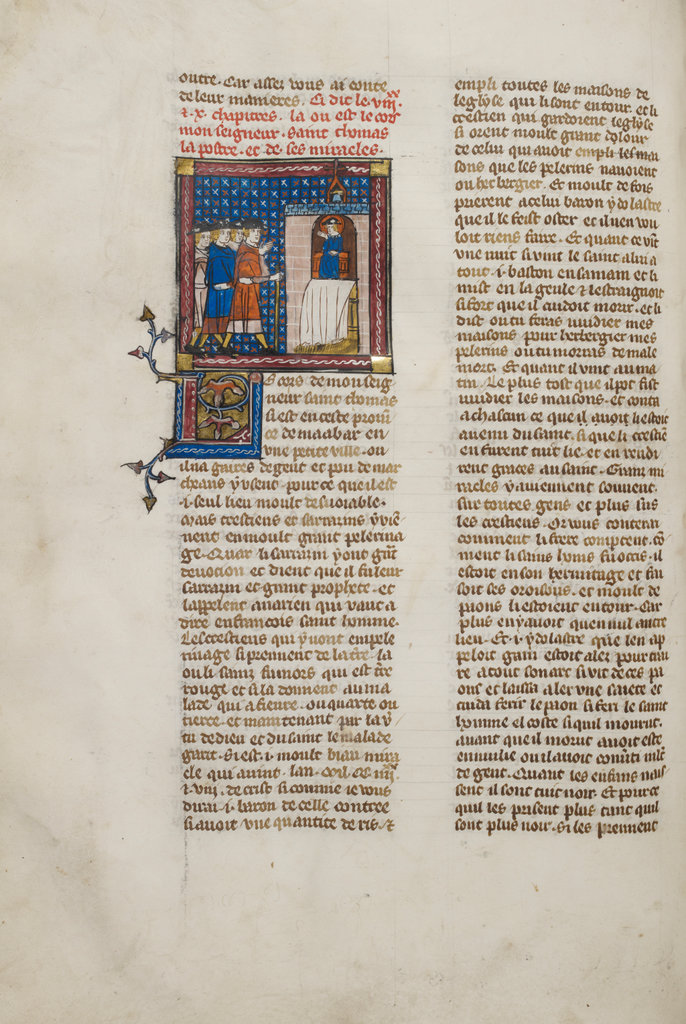 outre. Car assez vous ai conte
de leur manieres. Ci dit le viii.xx
& x. chapitres. la ou est le cors
mon seigneur. saint thomas
lapostre. et de ses miracles.
Le cors de mon seig
neur saint thomas
si est en ceste prouin
ce de maabar en
vne petite ville. ou
il na gaires de gent et pou de mar
cheans y usent. pour ce que il est
.i. seul lieu moult desuoiable.
Mais crestiens et sarrazins y uie
nent en moult grant pelerina
ge. Quar li sarrazin y ont grant
deuotion et dient que il fu leur
sarrazin et grant prophete. et
lappelent anarien qui vaut a
dire en francois saint homme.
Les crestiens qui y uont en pele
rinage si prennent de la terre. la
ou li sainz fu mors qui est tre
rouge et si la donnent au ma
lade qui a fieure. ou quarte ou
tierce. et maintenant par la v
tu de dieu et du saint le malade
garit. Si est .i. moult biau mira
cle qui auint. lan
& viij. de crist si comme ie vous
dirai .i. baron de celle contree
si auoit vne quantite de ris. &
empli toutes les maisons de
leglyse qui li sont entour. et li
crestien qui gardoient leglyse
si orent moult grant dolour
de celui qui auoit empli les mai
sons que les pelerins nauoient
ou herbergier. Et moult de fois
prierent a celui baron ydolastre
que il le feist oster et il nen vou
loit riens faire. Et quant ce vint
vne nuit si vint le saint a lui a
tout .i. baston en sa main et li
mist en la geule & lestraignoit
si fort que il cuidoit morir. et li
dist ou tu feras uuidier mes
maisons pour herbergier mes
pelerins ou tu morras de male
mort. Et quant il vint au ma
tin. Le plus tost que il pot fist
uuidier les maisons. et conta
a chascun ce que il auoit li estoit
auenu du saint. si que li crestien
en furent tuit lie. et en rendi
rent graces au saint. Grans mi
racles y auiennent souuent.
sur toutes gens et plus sus
les crestiens. Or vous conterai
comment li frere comptent. com
ment li sains hons fu occis. il
estoit en son hermitage et fai
soit ses oroisons. et moult de
paons li estoient entour. Car
plus en y auoit quen nul autre
lieu. Et .i. ydolastre que len ap
peloit gaui estoit alez pour trai
re a tout son arc si vit de ces pa
ons et laissa aler vne saiete et
cuida ferir le paon si feri le saint
homme el coste si quil mourut.
auant que il morut auoit este
en nubie ou il auoit conuerti mlt
de gent. Quant les enfans nais
sent il sont tuit noir. Et pour ce
quil les prisent plus tant quil
sont plus noir. Si les prennent